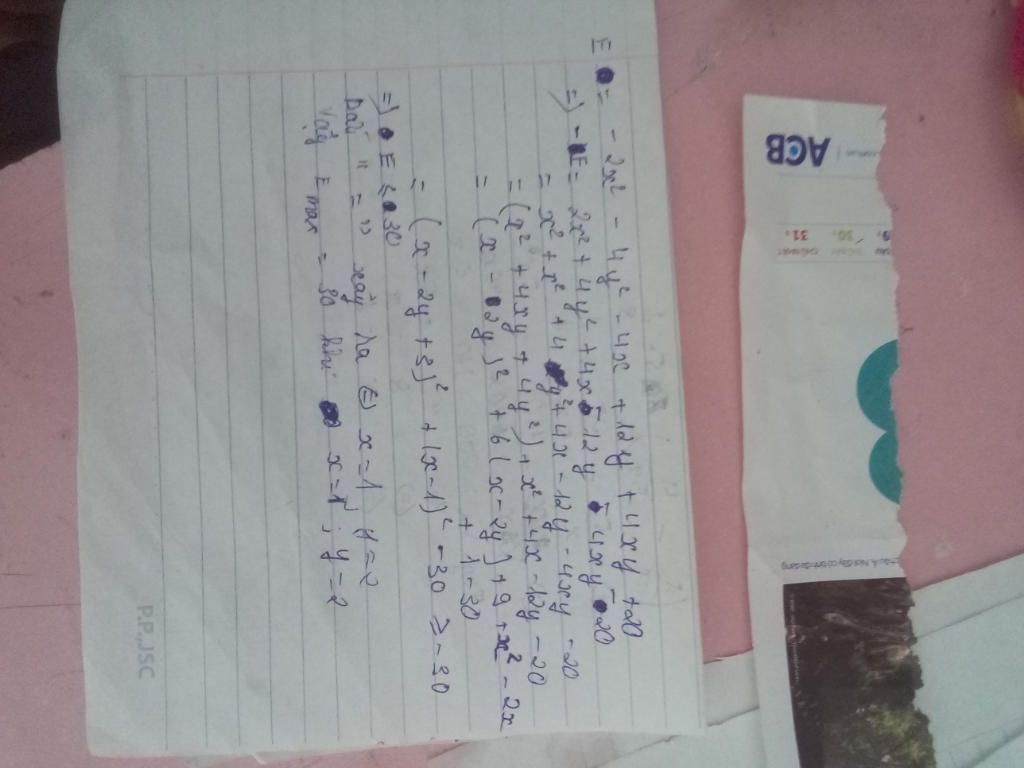 E = - 2x² - 4y² - 4x + 12y + 4xy + 20
=) - E = 2x² + 4y² + 4x - 12y - 4xy - 20
= x² + x² + 4y² + 4x - 12y - 4xy - 20
= (x² + 4xy + 4y²) + x² + 4x - 12y - 20
= (x - 2y)² + 6(x - 2y) + 9 + x² - 2x
+ 1 - 30
= (x - 2y + 3)² + (x - 1)² - 30 ≥ - 30
=) E ≤ 30
Dấu " = " xảy ra (=) x = 1, y = 2
Vậy E max = 30 khi x = 1; y = 2
P.P.,JSC
ACB
31
30